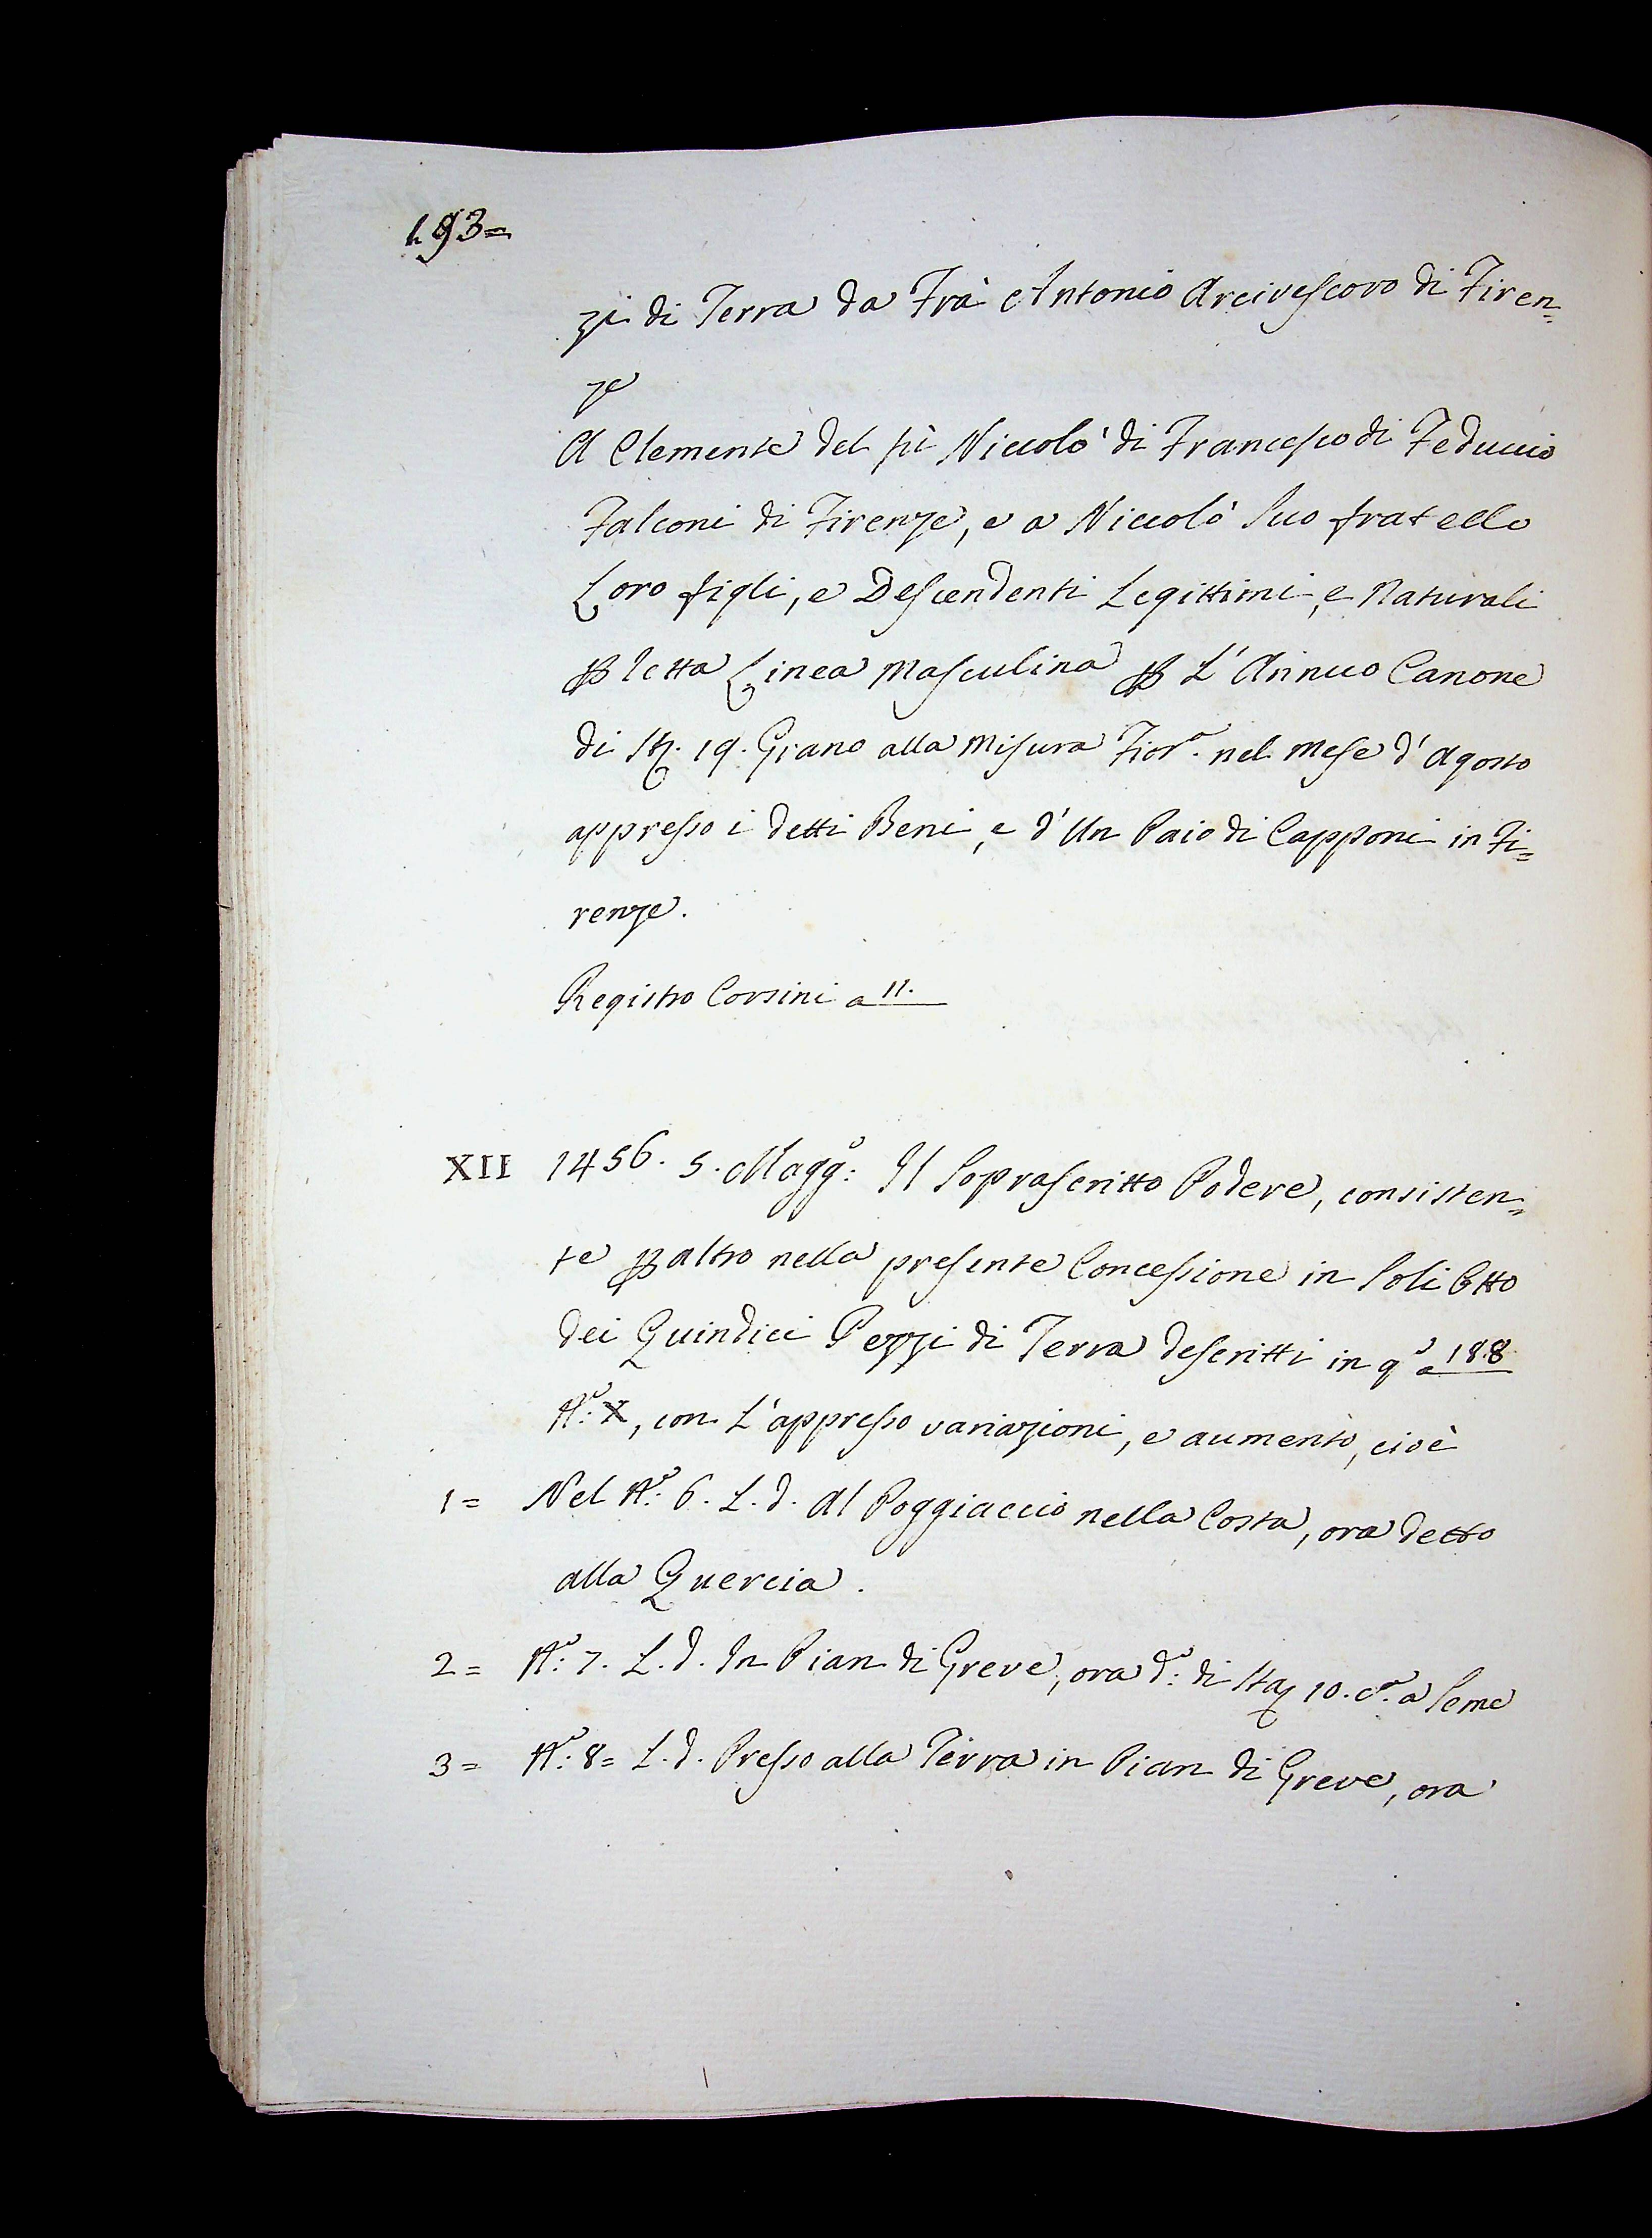 193=
zi di Terra da Frà Antonio Arcivescovo di Firen=
ze
A Clemente del qú Niccolò di Francesco di Feduccio
Falconi di Firenze, e a Niccolò Suo fratello
Loro figli, e Descendenti Legittimi, e Naturali
ꝑ retta Linea Masculina ꝑ L'Annuo Canone
di St. 19. Grano alla Misura Fior.ª nel Mese d'Agosto
appresso i detti Beni, e d'Un Paio di Capponi in Fi=
renze.
Registro Corsini a 11.
XII 1456. 5. Magg.º: Il Soprascritto Podere, consisten=
te ꝑ altro nella presente Concessione in Soli Otto
dei Quindici Pezzi di Terra descritti in q.º a 188
N.º: X, con L'appresso variazioni, e aumento, cioè
1= Nel N.º: 6. L. d. Al Poggiaccio nella Costa, ora detto
alla Quercia.
2= N.º: 7. L. d. In Pian di Greve, ora d.º: di Sta 10. c.ª a Seme
3= N.º: 8= L. d. Presso alla Terra in Pian di Greve, ora